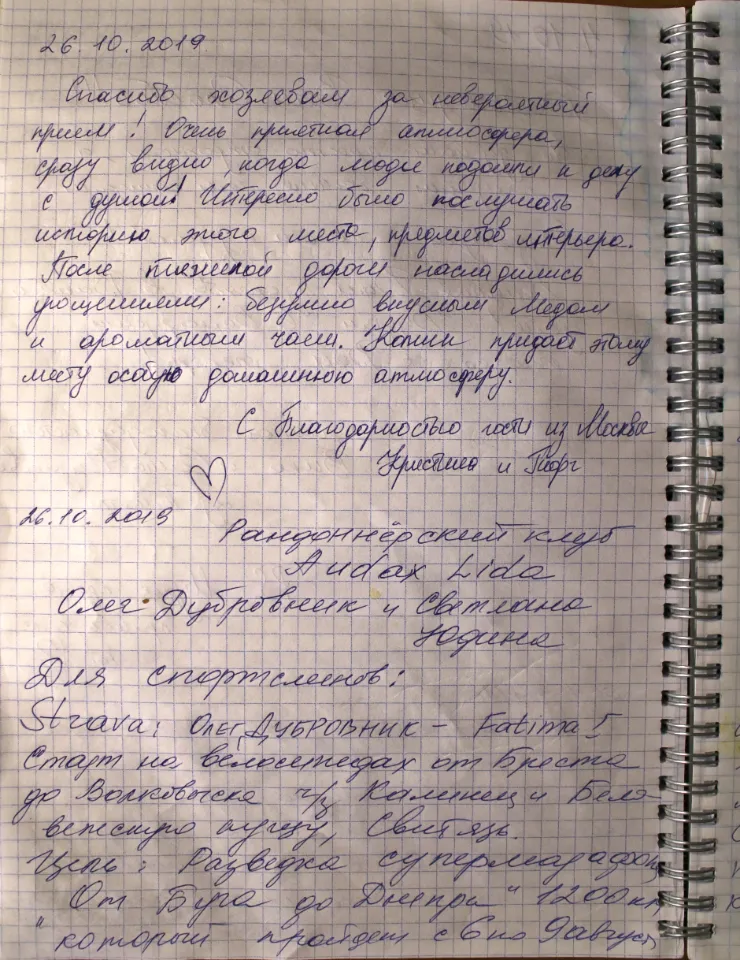 26.10.2019
Спасибо хозяевам за невероятный
прием! Очень приятная атмосфера,
сразу видно, когда люди подошли к делу
с душой! Интересно было послушать
историю этого места, предметов интерьера.
После тяжелой дороги насладились
угощениями: безумно вкусным медом
и ароматным чаем. Камин придает этому
месту особую домашнюю атмосферу.
С Благодарностью гости из Москвы
Кристина и Георг
26.10.2019
Рандоннёрский клуб
Audax Lida
Олег Дубровник и Светлана
Юдина
Для спортсменов:
Strava: Олег ДУБРОВНИК - Fatima I
Старт на велосипедах от Бреста
до Волковыска ч/з Каменец и Бело-
вежскую пущу, Свитязь.
Цель: Разведка супермарафона
"От Буга до Днепра" 1200 км,
который пройдет с 6 по 9 августа